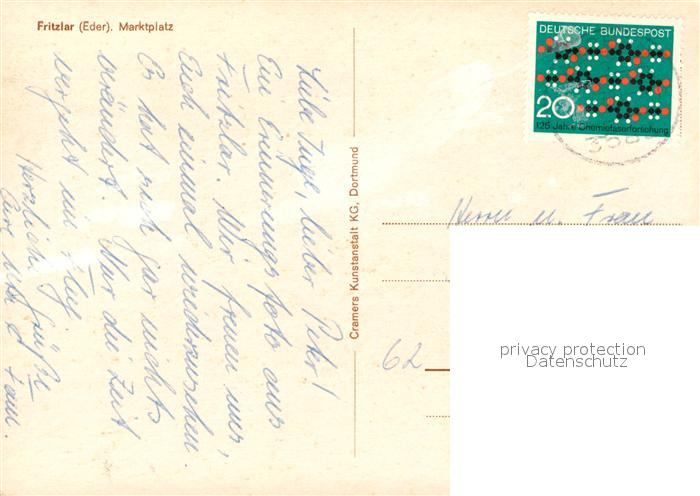 Fritzlar (Eder). Marktplatz
Liebe Inge, lieber Peter!
Ein Erinnerungsfoto aus
Fritzlar. Wir freuen uns,
Euch einmal wiederzusehen.
Es hat sich gar nichts
verändert. Nur die Zeit
vergeht im Flug.
Herzliche Grüße
Eure
Fam.
Cramers Kunstanstalt KG, Dortmund
DEUTSCHE BUNDESPOST
20
125 Jahre Chemiefaserforschung
Herrn u. Frau
62
privacy protection
Datenschutz